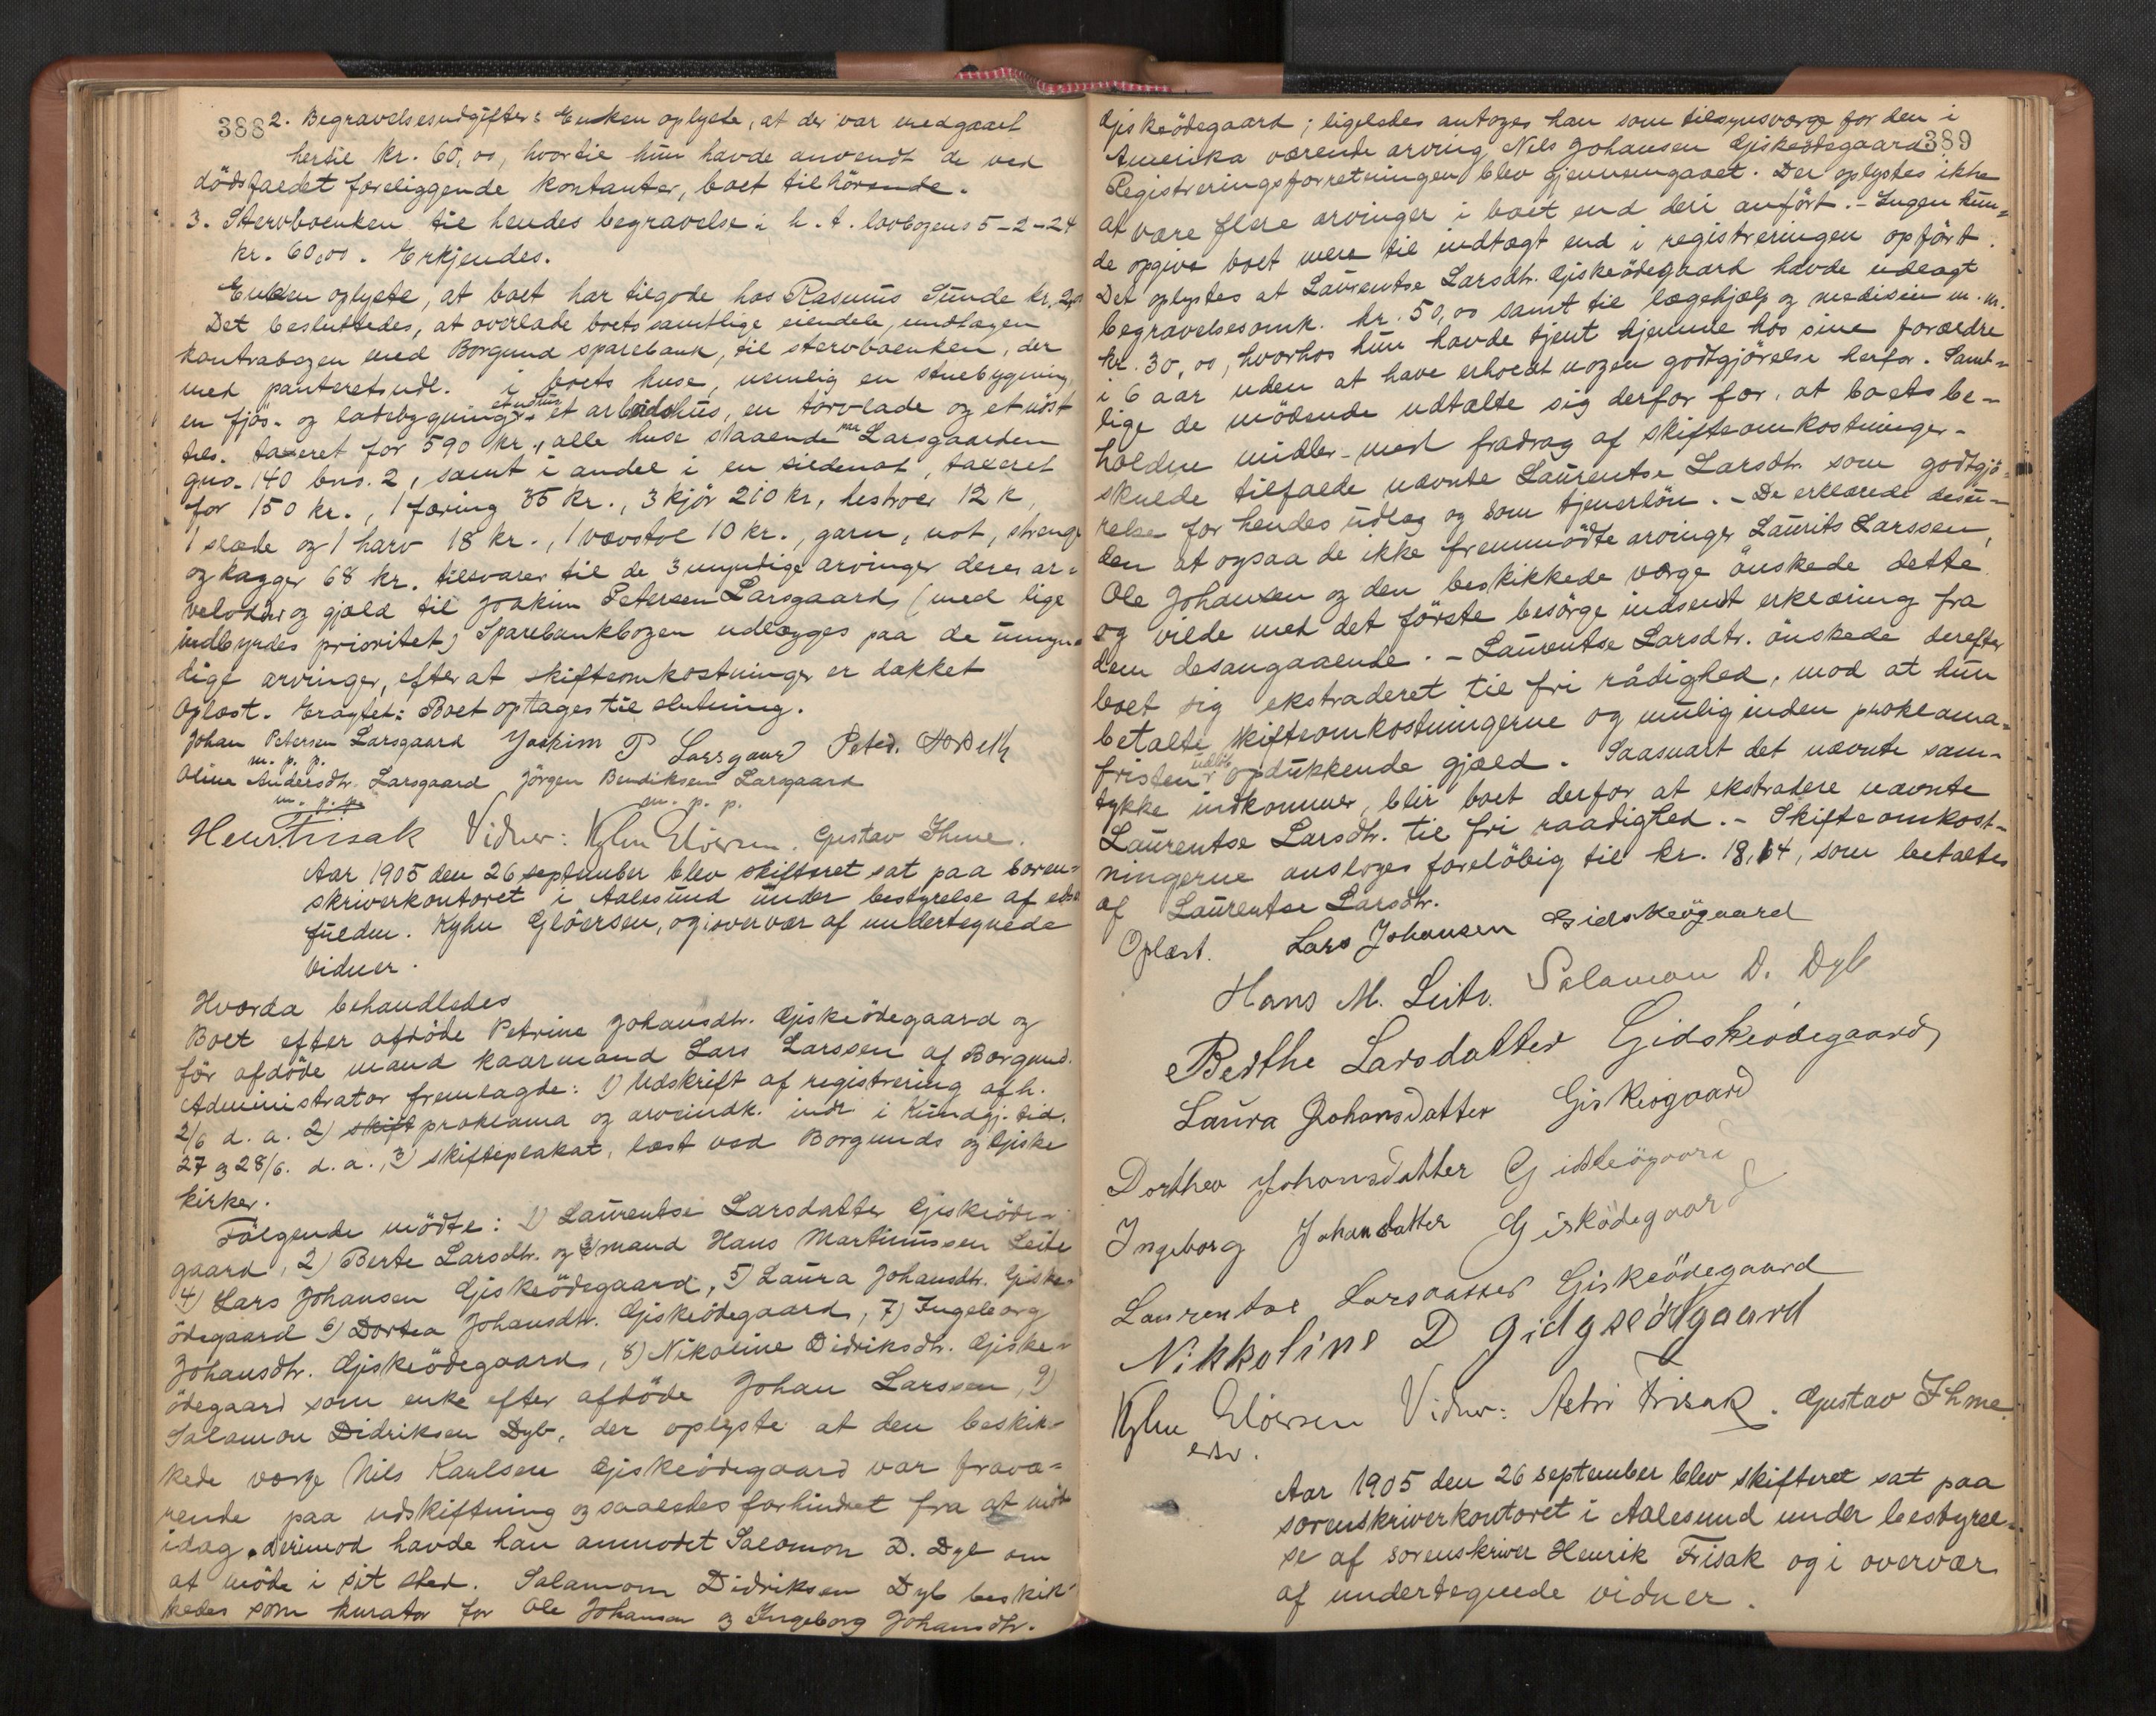 388
2. Begravelsesudgifter: Enken oplyste, at der var medgaaet
hertil kr. 60,00, hvortil hun havde anvendt de ved
dödsfaldet foreliggende kontanter, boet tilhörende.
3. Stervboenken til hendes begravelse i h. t. lovbogens 5-2-24
kr. 60,00. Erkjendes.
Enken oplyste, at boet har tilgode hos Rasmus Sunde kr.
Det besluttedes, at overlade boets samtlige eiendele, undtagen
kontrabogen med Borgund sparebank, til stervboenken, der
med panteretsudl. i boets huse, nemlig en stuebygning,
en fjös- og ladebygning, et arbeidshus, en törvlade og et nöst
tils. taxeret for 590 kr., alle huse staaende paa Larsgaarden
gno. 140 bno. 2, samt i andel i en sildenot, taxeret
for 150 kr., 1 færing 35 kr., 3 kjör 210 kr., hestvoer 12 k,
1 slæde og 1 harv 18 kr., 1 vævstol 10 kr., garn, not, streng
og kagger 68 kr. tilsvarer til de 3 umyndige arvinger deres ar-
velodder og gjæld til Joakim Petersen Larsgaard, (med lige
indbyrdes prioritet) Sparebankbogen udlægges paa de umyn-
dige arvinger, efter at skifteomkostninger er dækket
Oplæst. Eragtet: Boet optages til slutning.
Johan Petersen Larsgaard Joakim P Larsgaard Peter
m. p. p.
Oline Andersdtr. Larsgaard Jörgen Bendiksen Larsgaard
m. p. p. m. p. p.
Henr. Frisak Vidner: Kyhn Glöersen. Gustav Ihme.
Aar 1905 den 26 september blev skifteret sat paa soren-
skriverkontoret i Aalesund under bestyrelse af edsv.
fuldm. Kyhn Glöersen, og i overvær af undertegnede
vidner.
Hvorda behandledes
Boet efter afdöde Petrine Johansdtr. Gjskeödegaard og
för afdöde mand kaarmand Lars Larssen af Borgund.
Administrator fremlagde: 1) Udskrift af registrering afh.
2/6 d. a. 2) skift proklama og arveindk. indr. i Kundgj. tid.
27 og 28/6. d. a., 3) skifteplakat, læst ved Borgunds og Gjske
kirker.
Fölgende mödte: 1) Laurentse Larsdatter Gjskeöde-
gaard, 2) Berte Larsdtr. og 3) mand Hans Martinussen Leite
4) Lars Johansen Gjskeödegaard, 5) Laura Johansdtr. Gjske-
ödegaard 6) Dortea Johansdtr. Gjskeödegaard, 7) Ingeborg
Johansdtr. Gjskeödegaard, 8) Nikoline Didriksdtr. Gjske-
ödegaard som enke efter afdöde Johan Larssen, 9)
Salamon Didriksen Dyb, der oplyste at den beskik-
kede værge Nils Karlsen Gjskeödegaard var fravæ-
rende paa udskiftning og saaledes forhindret fra at möte
idag, derimod havde han anmodet Salomon D. Dyb om
at möde i sit sted. Salamon Didriksen Dyb beskik-
kedes som kurator for Ole Johansen og Ingeborg Johansdtr.
389
Gjskeödegaard; ligeledes antoges han som tilsynsværge for den i
Amerika værende arving Nils Johansen Gjskeödegaard.
Registreringsforretningen blev gjennemgaaet. Der oplystes ikke
at være flere arvinger i boet end deri anfört. – Ingen kun-
de opgive boet mere til indtægt end i registreringen opfört.
Det oplystes at Laurentse Larsdtr. Gjskeödegaard havde udlagt
begravelsesomk. kr. 50,00 samt til lægehjælp og medisin m. m.
kr. 30,00, hvorhos hun havde tjent hjemme hos sine forældre
i 6 aar uden at have erholdt nogen godtgjörelse herfor. Samt-
lige de mödende udtalte sig derfor for, at boets be-
holdne midler – med fradrag af skifteomkostninger –
skulde tilfalde nævnte Laurentse Larsdtr. som godtgjö-
relse for hendes udlæg og som tjenerlön. – De erklærede desu-
den at ogsaa de ikke fremmödte arvinger Laurits Larssen,
Ole Johansen og den beskikkede værge önskede dette
og vilde med det förste besörge indsendt erklæring fra
dem desangaaende. – Laurentse Larsdtr. önskede derefter
boet sig ekstraderet til fri rådighed, mod at hun
betalte skifteomkostningerne og mulig inden proklama-
fristens udlöb opdukkende gjæld. Saasnart det nævnte sam-
tykke indkommer, blir boet derfor at ekstradere nævnte
Laurentse Larsdtr. til fri raadighed. – Skifteomkost-
ningerne ansloges foreløbig til kr. 18,64, som betaltes
af Laurentse Larsdtr.
Oplæst. Lars Johansen Gidskeögaard
Hans M. Leite. Salamon D. Dyb
Berthe Larsdatter Gidskeödegaard
Laura Johansdatter Giskeögaard
Dorthea Johansdatter Gidskeögaard
Ingeborg Johansdatter Gisködegaard
Laurentse Larsdatter Giskeödegaard
Nikkoline D Gidgseödgaard
Kyhn Glöersen Vidner: Astri Frisak. Gustav Ihme.
edsv.
Aar 1905 den 26 september blev skifteret sat paa
sorenskriverkontoret i Aalesund under bestyrel-
se af sorenskriver Henrik Frisak og i overvær
af undertegnede vidner.